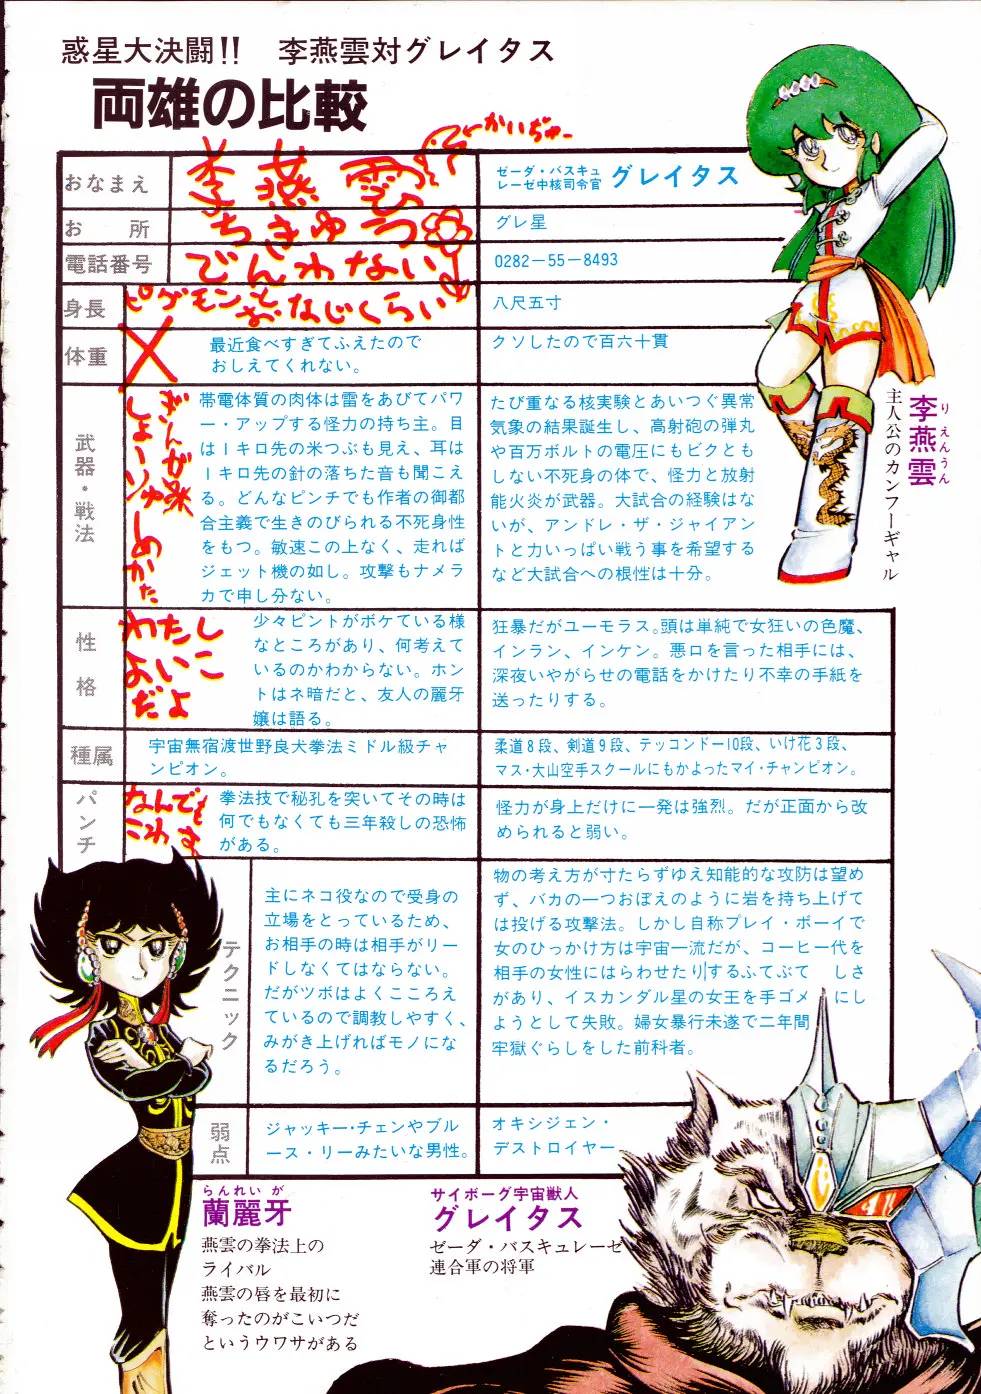 惑星大決闘!!　李燕雲対グレイタス
両雄の比較
おなまえ
李燕雲
←かいぢゅー
ゼーダ・バスキュ
レーゼ中核司令官 グレイタス
お所
ちきゅう
グレ星
電話番号
でんわない
0282－55－8493
身長
ピグモンと
おなじくらい
八尺五寸
体重
×
最近食べすぎてふえたので
おしえてくれない。
クソしたので百六十貫
武器・戦法
ぎんが
しょーりゅー
しめかた
帯電体質の肉体は雷をあびてパワ
ー・アップする怪力の持ち主。目
は1キロ先の米つぶも見え、耳は
1キロ先の針の落ちた音も聞こえ
る。どんなピンチでも作者の御都
合主義で生きのびられる不死身性
をもつ。敏速この上なく、走れば
ジェット機の如し。攻撃もナメラ
カで申し分ない。
たび重なる核実験とあいつぐ異常
気象の結果誕生し、高射砲の弾丸
や百万ボルトの電圧にもビクとも
しない不死身の体で、怪力と放射
能火炎が武器。大試合の経験はな
いが、アンドレ・ザ・ジャイアン
トと力いっぱい戦う事を希望する
など大試合への根性は十分。
性格
わたし
よいこ
だよ
少々ピントがボケている様
なところがあり、何考えて
いるのかわからない。ホン
トはネ暗だと、友人の麗牙
嬢は語る。
狂暴だがユーモラス。頭は単純で女狂いの色魔、
インラン、インケン。悪口を言った相手には、
深夜いやがらせの電話をかけたり不幸の手紙を
送ったりする。
種属
宇宙無宿渡世野良犬拳法ミドル級チャ
ンピオン。
柔道8段、剣道9段、テッコンドー10段、いけ花3段、
マス・大山空手スクールにもかよったマイ・チャンピオン。
パンチ
なんでも
こわす
拳法技で秘孔を突いてその時は
何でもなくても三年殺しの恐怖
がある。
怪力が身上だけに一発は強烈。だが正面から改
められると弱い。
テクニック
主にネコ役なので受身の
立場をとっているため、
お相手の時は相手がリー
ドしなくてはならない。
だがツボはよくこころえ
ているので調教しやすく、
みがき上げればモノにな
るだろう。
物の考え方が寸たらずゆえ知能的な攻防は望め
ず、バカの一つおぼえのように岩を持ち上げて
は投げる攻撃法。しかし自称プレイ・ボーイで
女のひっかけ方は宇宙一流だが、コーヒー代を
相手の女性にはらわせたりするふてぶて しさ
があり、イスカンダル星の女王を手ゴメ にし
ようとして失敗。婦女暴行未遂で二年間
牢獄ぐらしをした前科者。
弱点
ジャッキー・チェンやブル
ース・リーみたいな男性。
オキシジェン・
デストロイヤー
りえんうん
李燕雲
主人公のカンフーギャル
らんれいが
蘭麗牙
燕雲の拳法上の
ライバル
燕雲の唇を最初に
奪ったのがこいつだ
というウワサがある
サイボーグ宇宙獣人
グレイタス
ゼーダ・バスキュレーゼ
連合軍の将軍